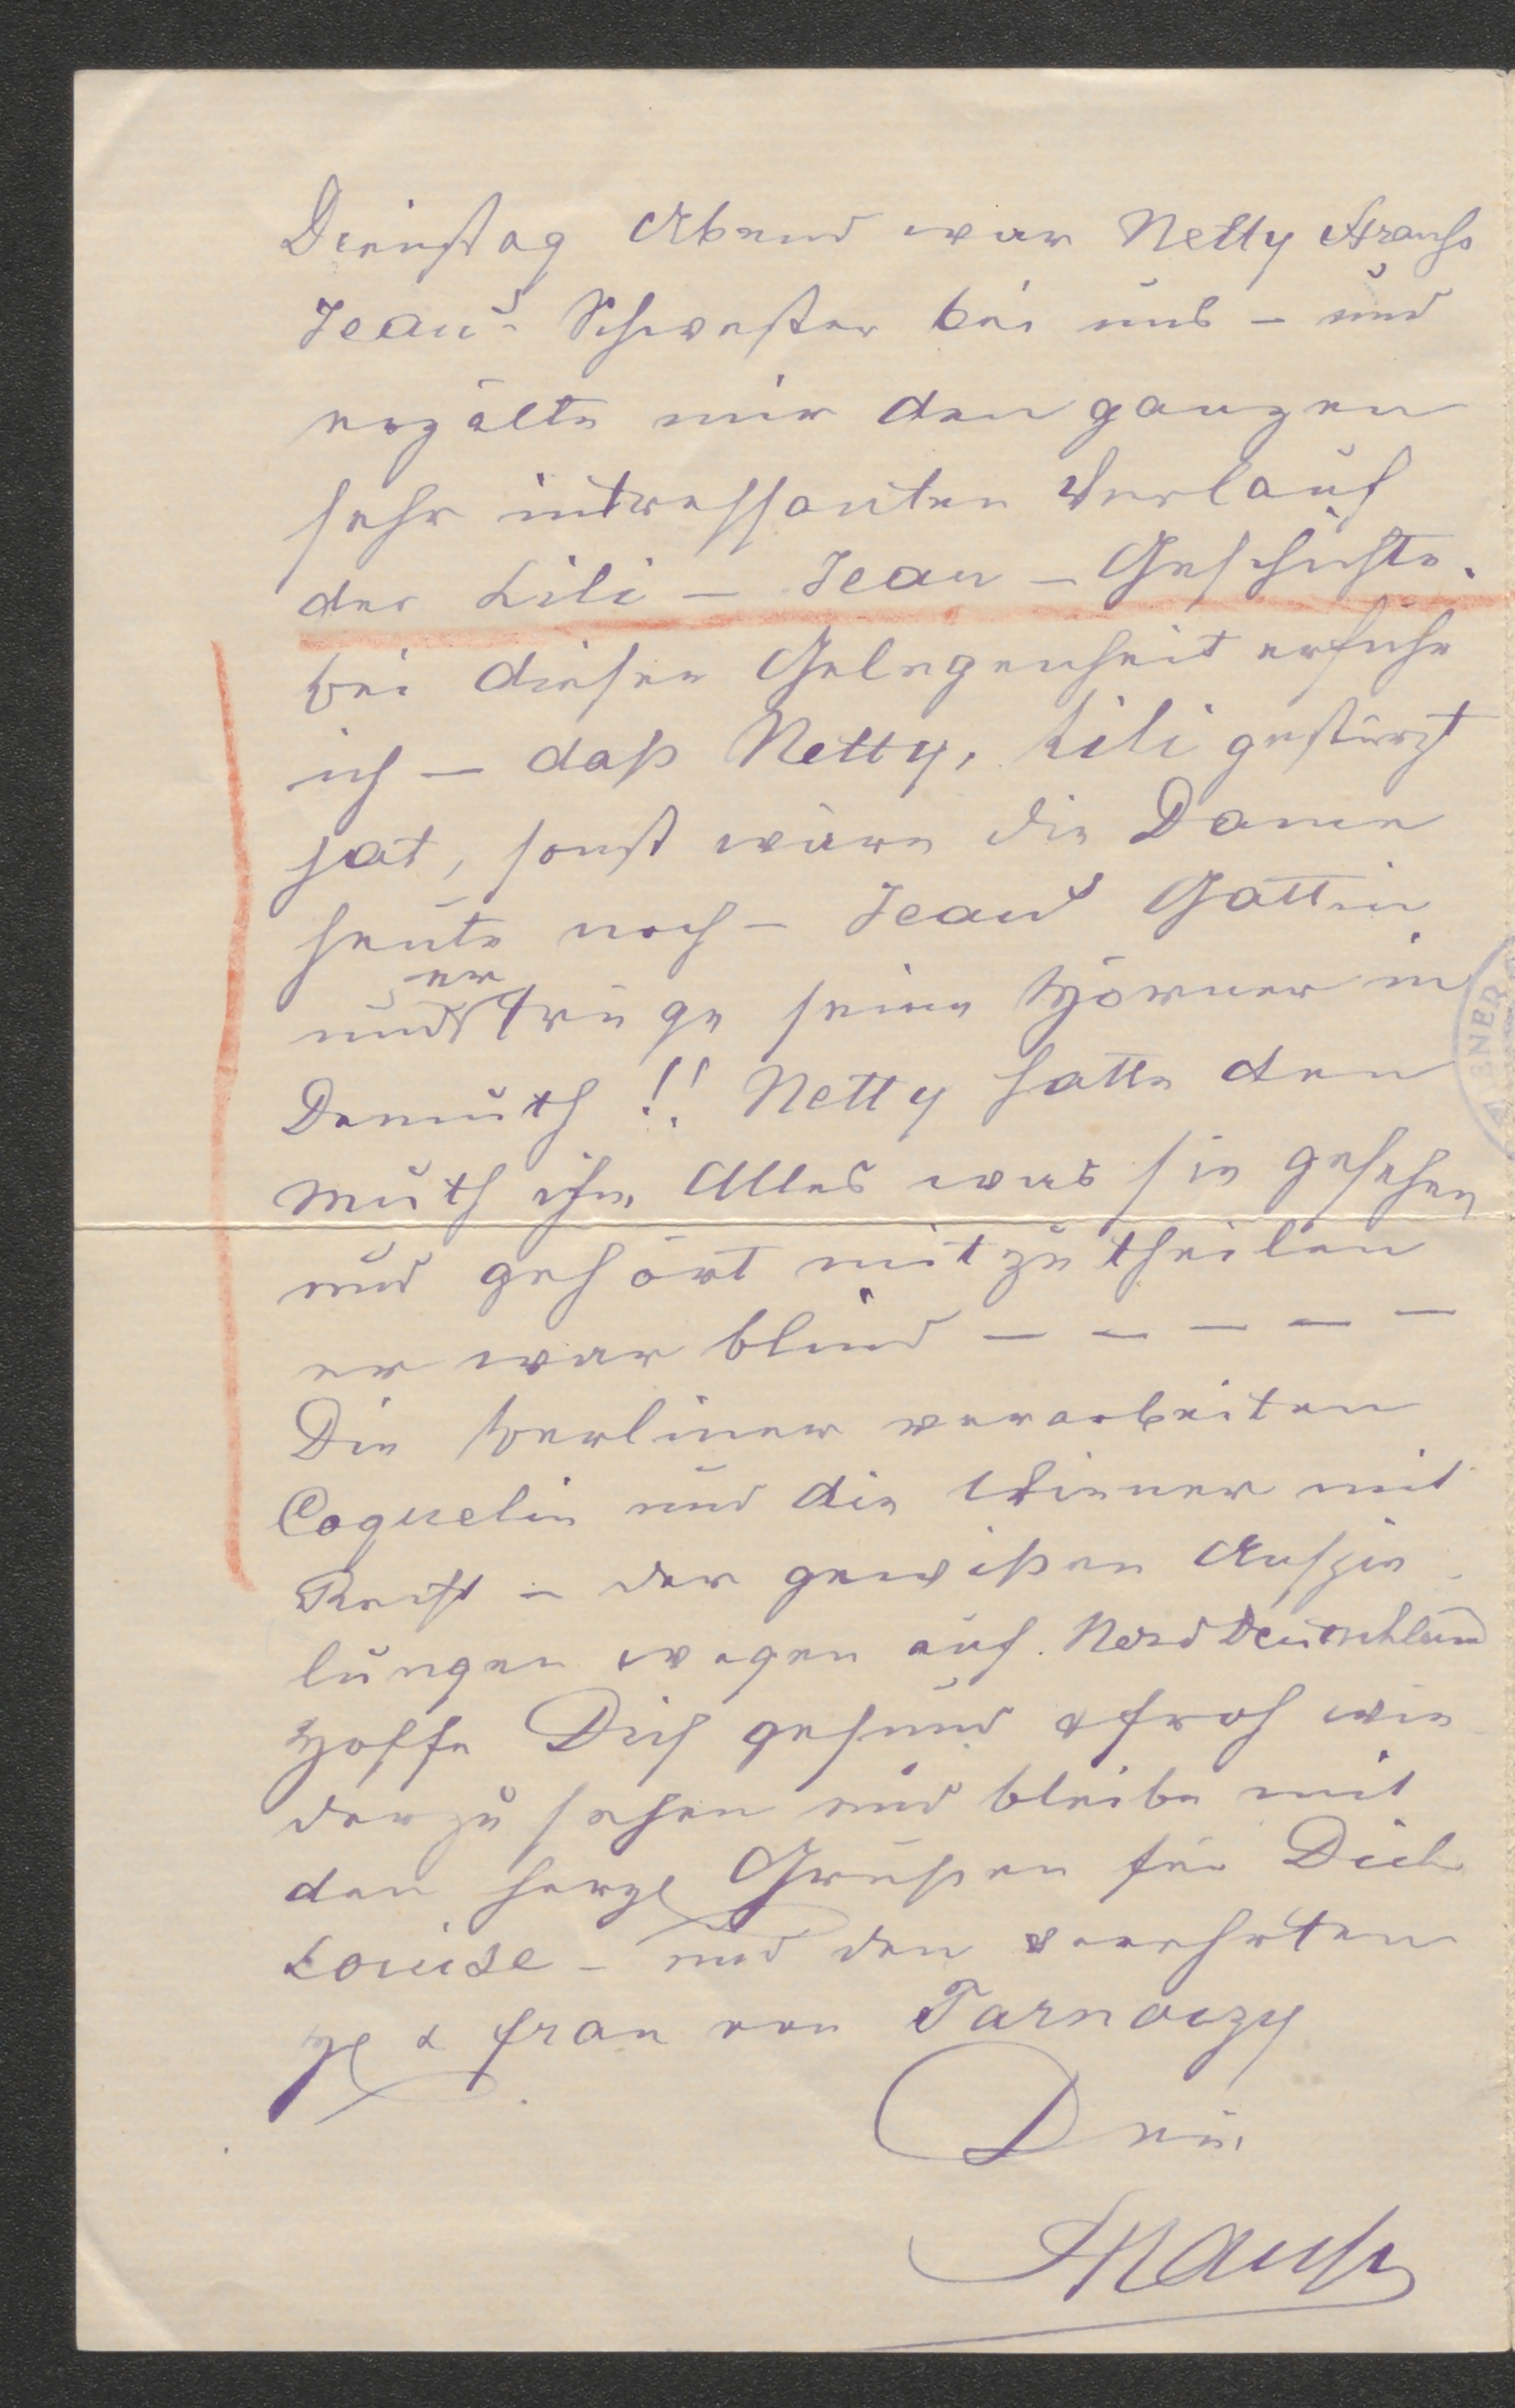 Dienstag Abend war Netty Strauß
Jean's Schwester bei uns – und
erzälte mir den ganzen
sehr intressanten Verlauf
der Lili – Jean – Geschichte.
Bei dieser Gelegenheit erfuhr
ich – daß Netty, Lili gestürzt
hat, sonst wäre die Dame
heute noch – Jeans Gattin
er
und trüge seine Hörner in
Demuth!! Netty hatte den
Muth ihm Alles was sie gesehen
und gehört mitzutheilen
er war blind – – – – –
Die Berliner verarbeiten
Coquelin und die Wiener mit
Recht – der gewißen Anspie
lungen wegen auf Norddeutschland
Hoffe Dich gesund & froh wie
der zu sehen und bleibe mit
den herzl Grüßen für Dich
Louise – und den verehrten
H & Frau von Tarnoczy
Dein
Strauß